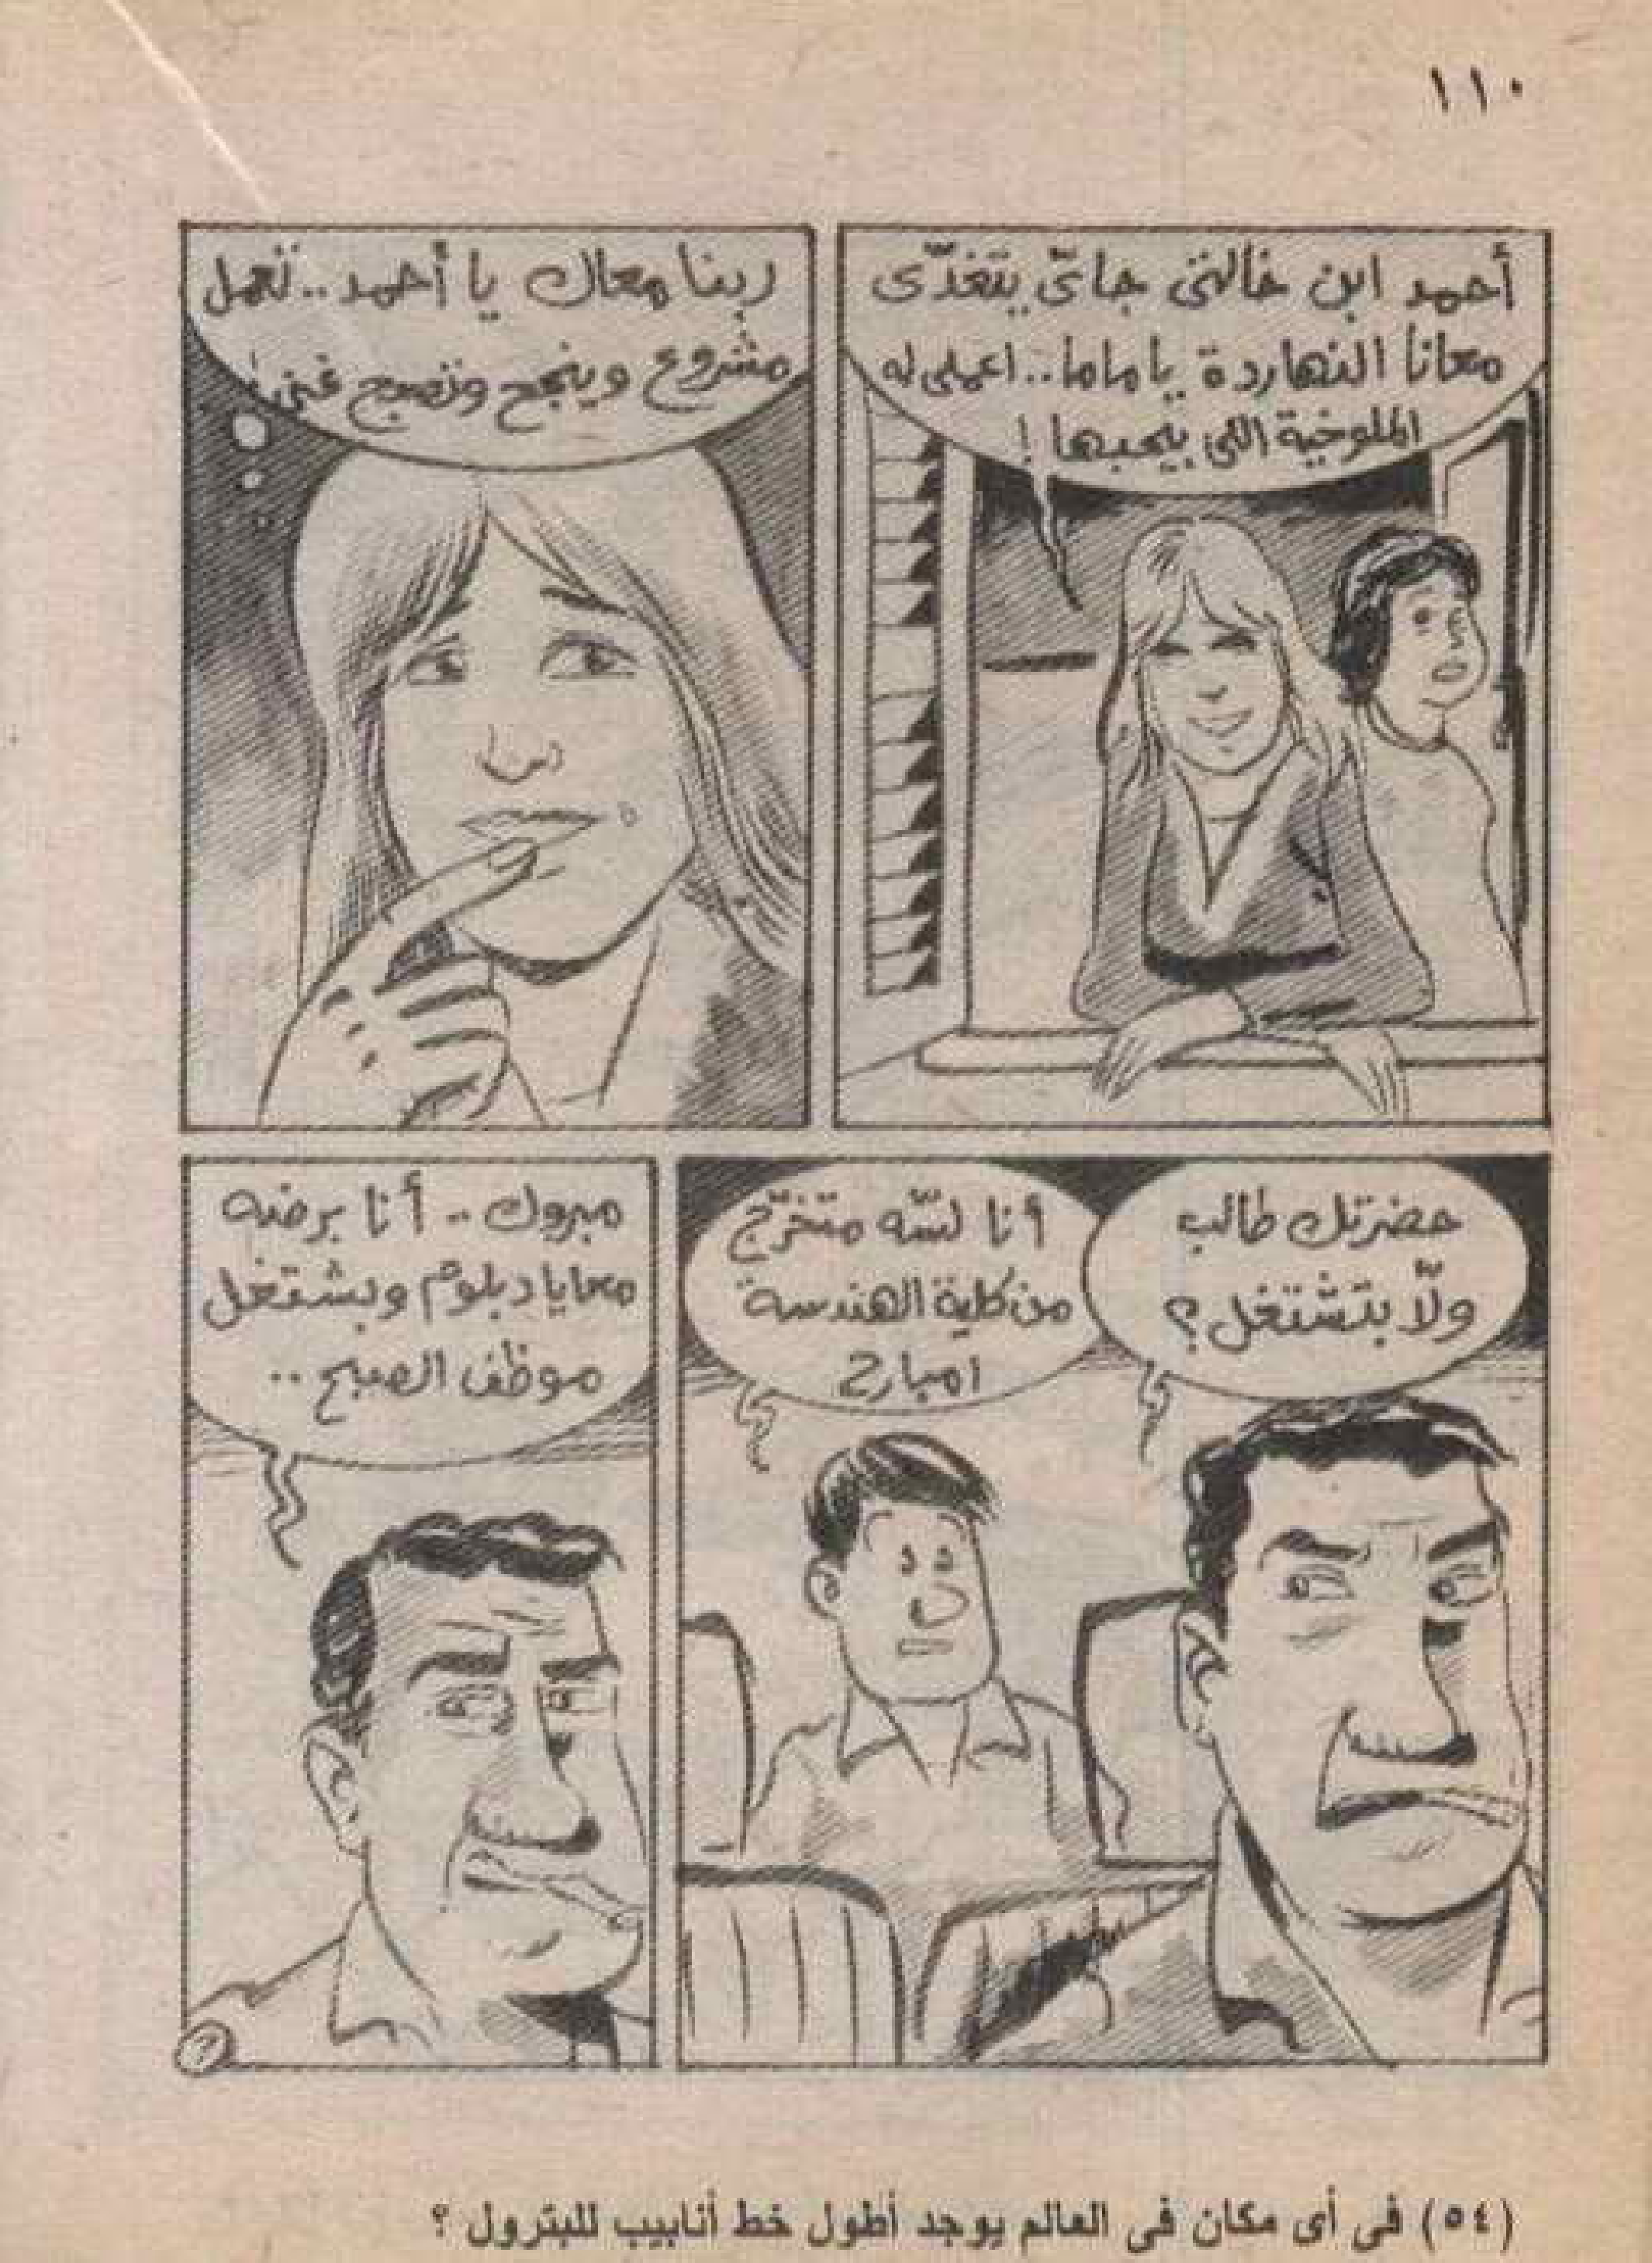 ١١٠
أحمد ابن خالتى جاىّ يتغدّى
معانا النهاردة يا ماما.. اعملى له
الملوخية اللى بيحبها!
ربنا معاك يا أحمد.. تعمل
مشروع وينجح وتصبح غنى!
حضرتك طالب
ولّا بتشتغل؟
أنا لسّه متخرّج
من كلية الهندسة
امبارح
مبروك.. أنا برضه
معايا دبلوم وبشتغل
موظف الصبح..
(٥٤) فى أى مكان فى العالم يوجد أطول خط أنابيب للبترول ؟